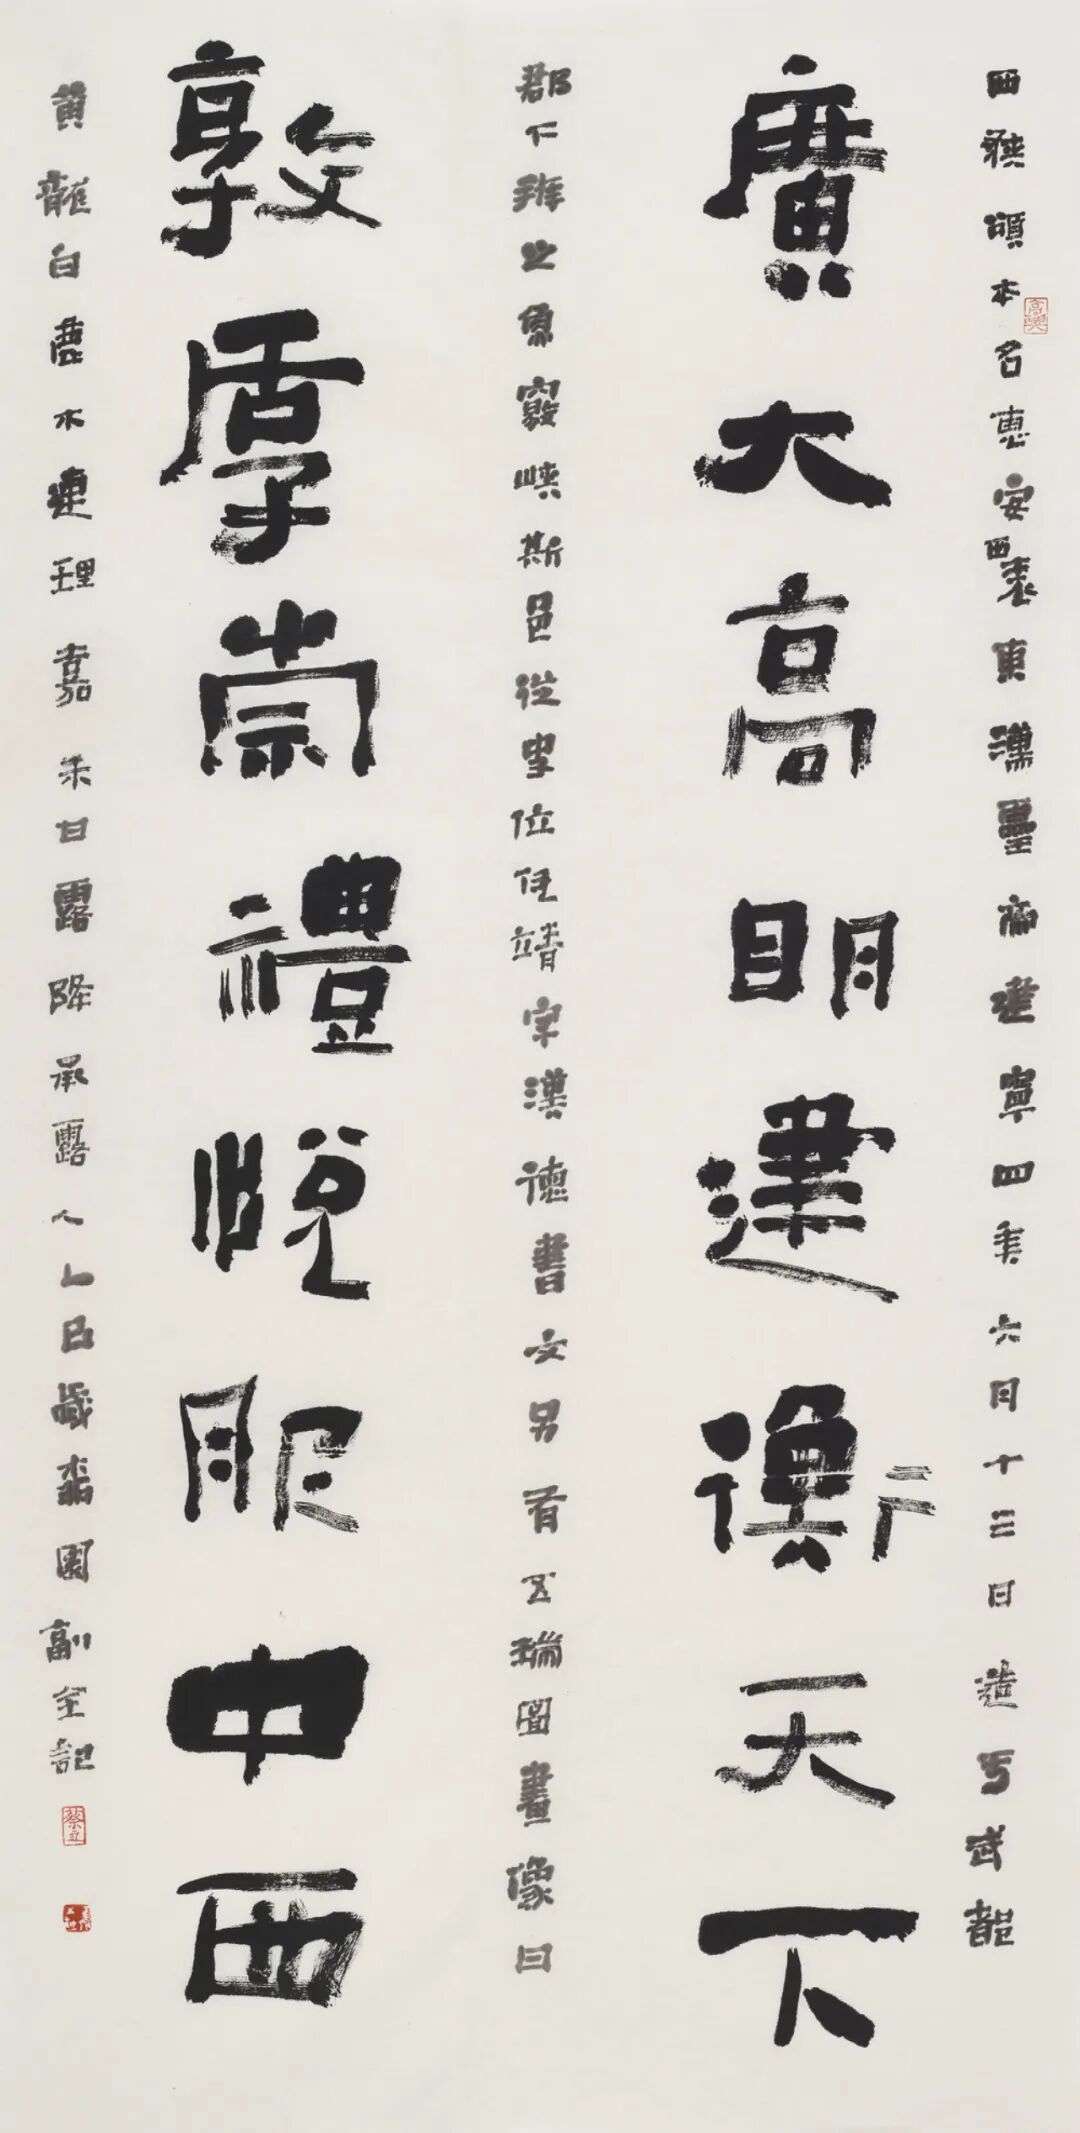 西狹頌本名惠安西表東漢靈帝建寧四年六月十三日造于武都
廣大高明建衡天下
郡下辨之魚竅峽斯邑從史位仇靖字漢德書文另有五瑞圖畫像曰
敦厚崇禮悅服中西
黃龍白鹿木連理嘉禾甘露降承露人乙巳歲園副記